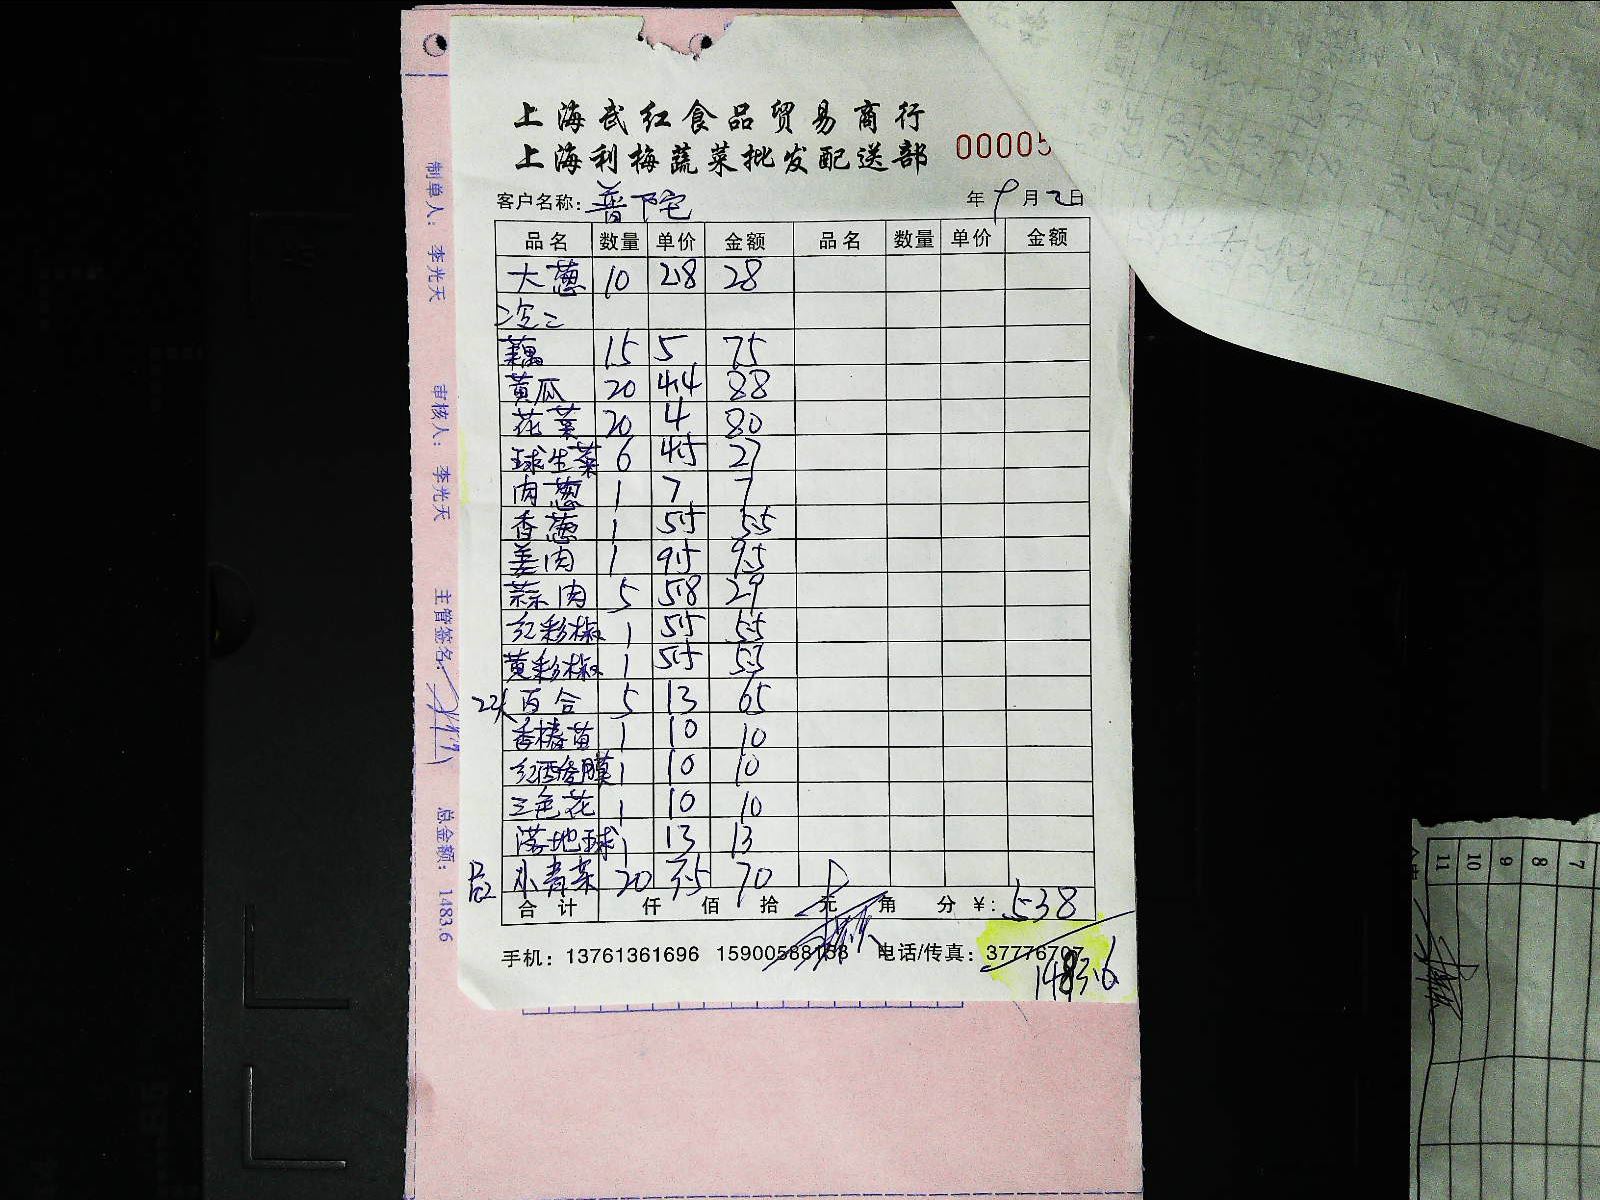 上海武红食品贸易商行
上海利梅蔬菜批发配送部
00005
客户名称: 普下宅 年 9 月 2 日
品名 数量 单价 金额 品名 数量 单价 金额
大葱 10 2.8 28
藕 15 5 75
黄瓜 20 4.4 88
花菜 20 4 80
球生菜 6 4.5 27
肉葱 1 7 7
香葱 1 5.5 5.5
姜肉 1 9.5 9.5
蒜肉 5 5.8 29
红彩椒 1 5.5 5.5
黄彩椒 1 5.5 5.5
22头 百合 5 13 65
香椿苗 1 10 10
1 10 10
三色花 1 10 10
落地球 1 13 13
小青菜 20 3.5 70
合计 仟 佰 拾 元 角 分 ¥: 538
手机: 13761361696 15900588188 电话/传真: 37776707
1483.6
制单人: 李光天
审核人: 李光天
主管签名:
总金额: 1483.6
11 10 9 8 7